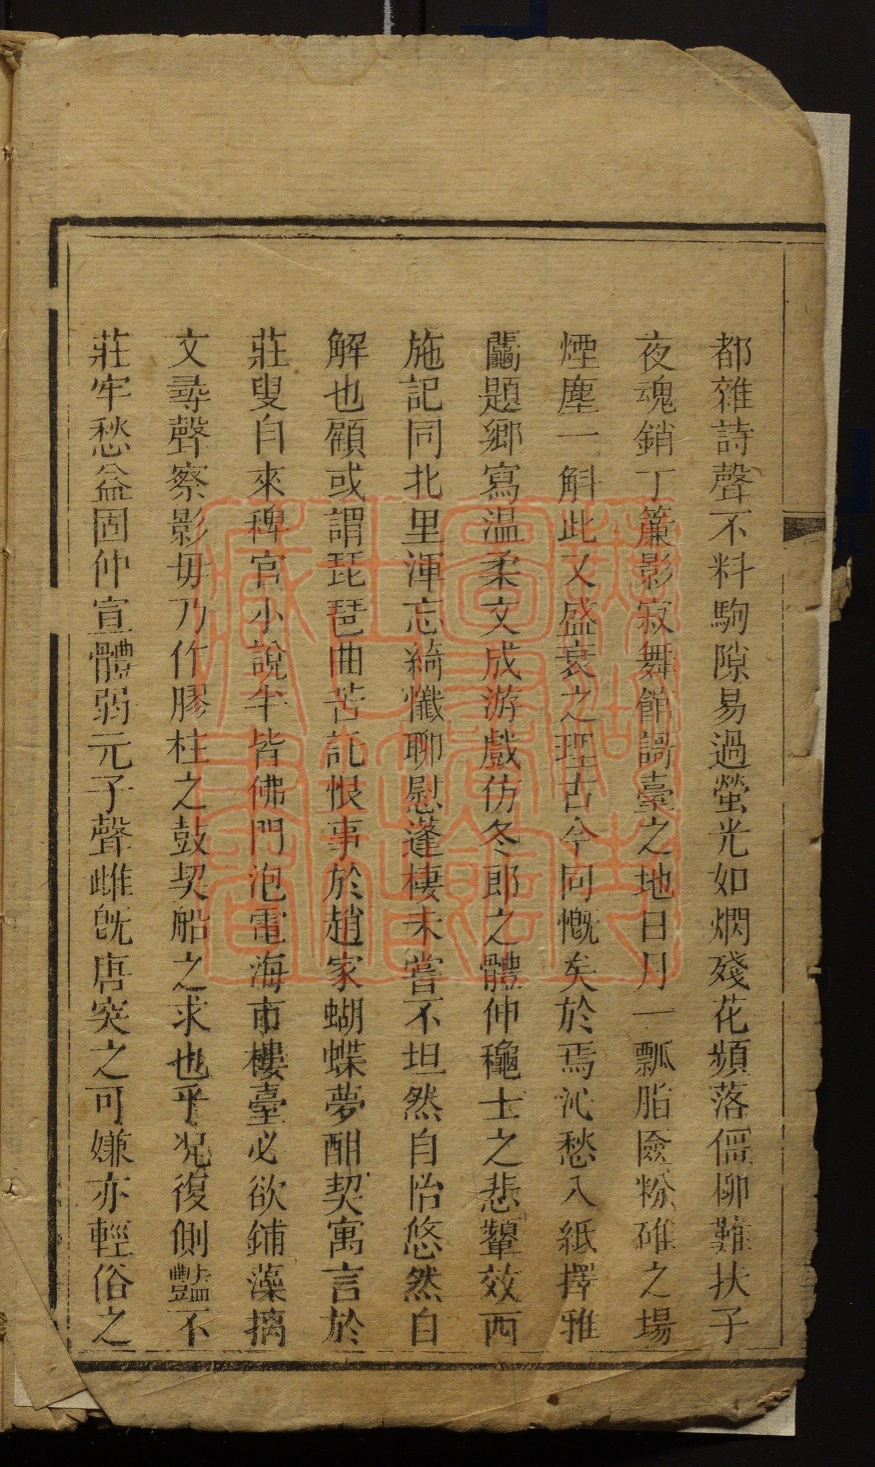 都雜詩聲不料駒隙易過螢光如燜殘花頻落僵柳難扶子
夜魂銷丁簾影寂舞館謌臺之地日月一瓢脂奩粉碓之場
煙塵一斛此又盛衰之理古今同慨矣於焉沁愁入紙擇雅
闖題鄉寫温柔文成游戲仿冬郎之體仲穐士之悲顰效西
施記同北里渾忘綺懺聊慰蓬棲未嘗不坦然自怡悠然自
解也顧或謂琵琶曲苦託恨事於趙家蝴蝶夢酣契寓言於
莊叟自來稗官小說半皆佛門泡電海市樓臺必欲鋪藻摛
文尋聲察影毋乃作膠柱之鼓契船之求也乎况復側豔不
莊牢愁益固仲宣體弱元子聲雌旣唐突之可嫌亦輕俗之